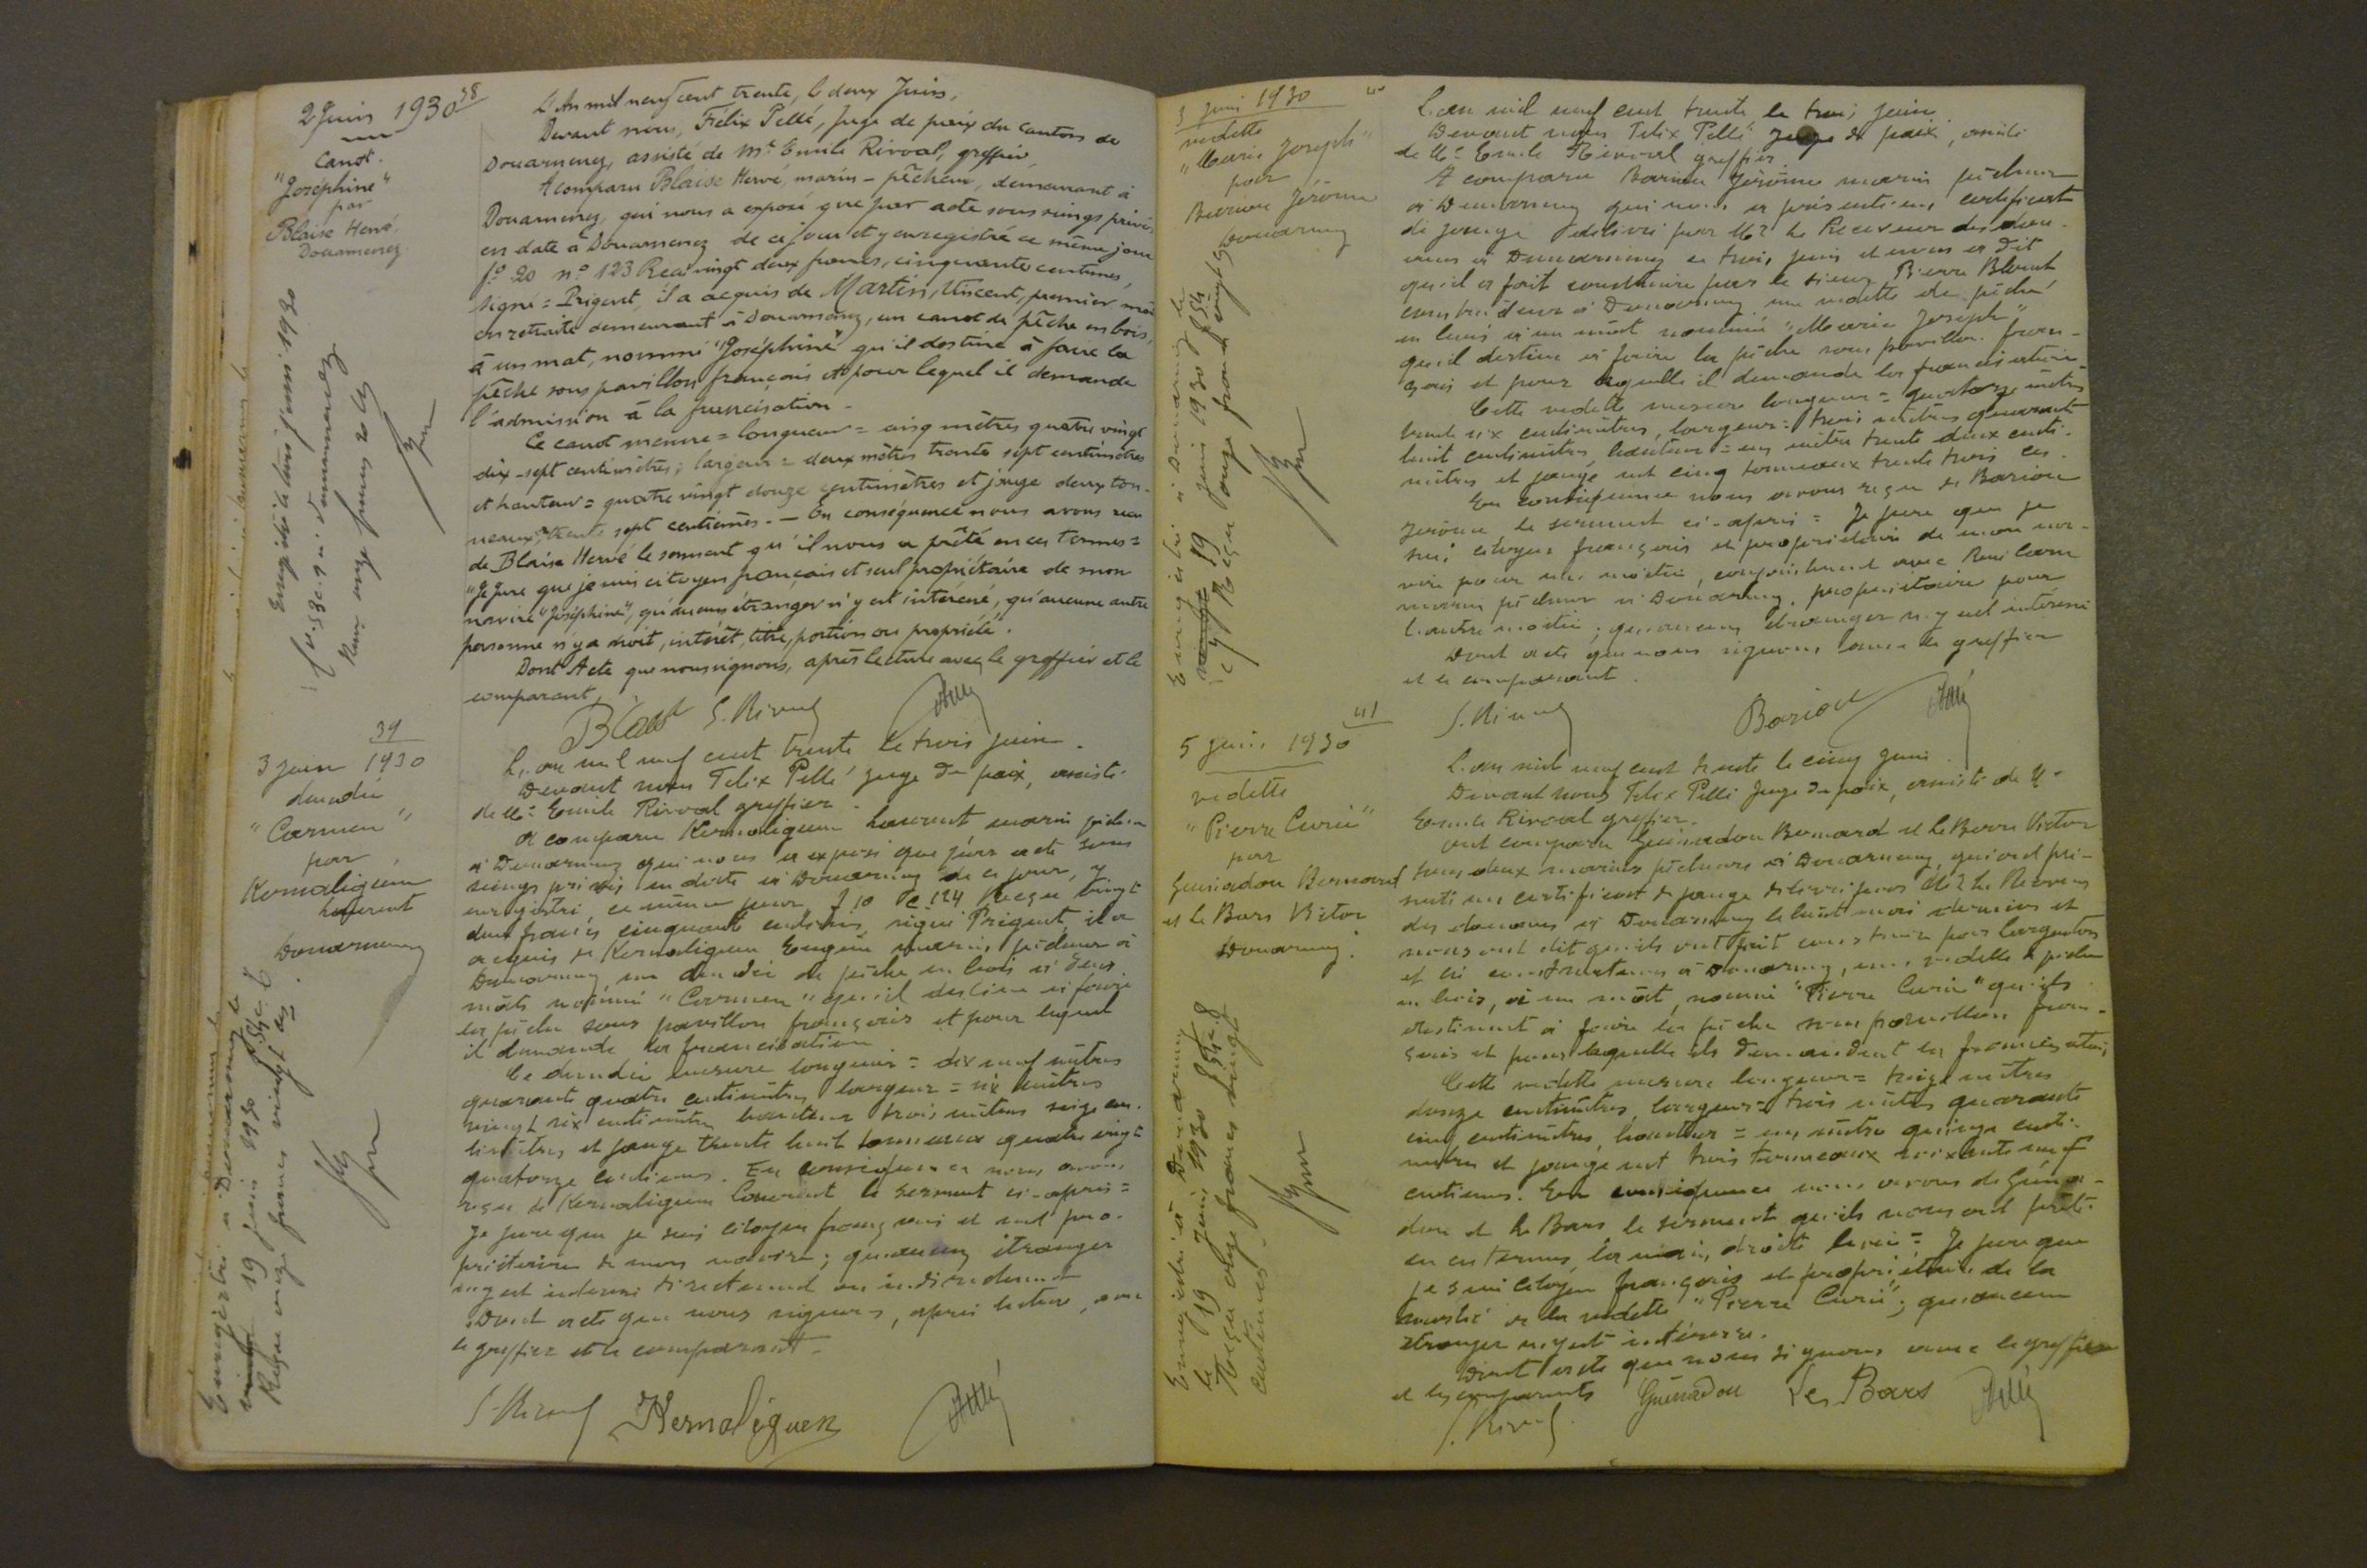 38
2 Juin 1930
Canot.
"Joséphine"
par
Blaise Hervé
Douarnenez
Enregistré le trois juin 1930
L'An mil neuf cent trente, le deux Juin,
Devant nous, Félix Pellé, Juge de paix du canton de
Douarnenez, assisté de Mr Emile Rivoal, greffier,
A comparu Blaise Hervé, marin-pêcheur, demeurant à
Douarnenez, qui nous a exposé que par acte sous seings privés
en date à Douarnenez de ce jour et y enregistré ce même jour
fo 20 no 123 Reçu vingt deux francs, cinquante centimes,
signé = Prigent, il a acquis de Martin, Vincent, premier
en retraite demeurant à Douarnenez, un canot de pêche en bois,
à un mat, nommé "Joséphine" qu'il destine à faire la
pêche sous pavillon français et pour lequel il demande
l'admission à la francisation.
Ce canot mesure = longueur = cinq mètres quatre vingt
dix-sept centimètres; largeur = deux mètres trente sept centimètres
et hauteur = quatre vingt douze centimètres et jauge deux ton-
neaux, trente sept centièmes. — En conséquence nous avons reçu
de Blaise Hervé le serment qu'il nous a prêté en ces termes =
"Je Jure que je suis citoyen français et seul propriétaire de mon
navire "Joséphine", qu'aucun étranger n'y est intéressé, qu'aucune autre
personne n'y a droit, intérêt, titre, portion ou propriété".
Dont Acte que nous signons, après lecture avec le greffier et le
comparant,
39
3 Juin 1930
dundée
"Carmen"
par
Kernaléguen
Laurent
Douarnenez
Enregistré à Douarnenez le
19 juin 1930
Reçu onze francs vingt
L'an mil neuf cent trente le trois juin.
Devant nous Felix Pellé juge de paix, assisté
de Me Emile Rivoal greffier.
A comparu Kernaléguen Laurent marin pêcheur
à Douarnenez qui nous a exposé que par acte sous
seings privés en date à Douarnenez de ce jour, y
enregistré, ce même jour 124 Reçu vingt
deux francs cinquante centimes, signé Prigent, il a
acquis de Kernaléguen Eugène marin pêcheur à
Douarnenez, un dundée de pêche en bois à deux
mâts nommé "Carmen" qu'il destine à faire
la pêche sous pavillon français et pour lequel
il demande la francisation.
Ce dundée mesure longueur = dix neuf mètres
quarante quatre centimètres, largeur = six mètres
vingt six centimètres hauteur trois mètres seize cen-
timètres et jauge trente huit tonneaux quatre vingt
quatorze centièmes. En conséquence nous avons
reçu de Kernaléguen Laurent le serment ci-après =
Je jure que je suis citoyen français et seul pro-
priétaire de mon navire; qu'aucun étranger
n'y est intéressé directement ou indirectement
Dont acte que nous signons, après lecture, avec
le greffier et le comparant.
Kernaléguen
3 Juin 1930
vedette
"Marie Joseph"
par
Bariou Jérôme
Douarnenez
Enregistré à Douarnenez le
19 juin 1930
Reçu onze francs vingt
L'an mil neuf cent trente le trois juin
Devant nous Felix Pellé Juge de paix, assisté
de Me Emile Rivoal greffier.
A comparu Bariou Jérôme marin pêcheur
à Douarnenez qui nous a présenté un certificat
de jauge délivré par Mr le Receveur des doua-
nes à Douarnenez le trois juin et nous a dit
qu'il a fait construire par le sieur Pierre
constructeur à Douarnenez une vedette de pêche
en bois à un mât nommée "Marie Joseph"
qu'il destine à faire la pêche sous pavillon fran-
çais et pour laquelle il demande la francisation
Cette vedette mesure longueur = quatorze mètres
trente six centimètres, largeur = trois mètres quarante
huit centimètres hauteur = un mètre trente deux centi-
mètres et jauge net cinq tonneaux trente trois
En conséquence nous avons reçu de Bariou
Jérôme le serment ci-après = Je jure que je
suis citoyen français et propriétaire de mon na-
vire pour une moitié, conjointement avec
marin pêcheur à Douarnenez, propriétaire pour
l'autre moitié; qu'aucun étranger n'y est intéressé
Dont acte que nous signons avec le greffier
et le comparant.
Bariou
41
5 juin 1930
vedette
"Pierre Curie"
par
Guénadou Bernard
et Le Bars Victor
Douarnenez.
Enregistré à Douarnenez
le 19 Juin 1930
Reçu onze francs vingt
centimes
L'an mil neuf cent trente le cinq juin.
Devant nous Felix Pellé Juge de paix, assisté de Me
Emile Rivoal greffier.
ont comparu Guénadou Bernard et Le Berre Victor
tous deux marins pêcheurs à Douarnenez, qui ont pré-
senté un certificat de jauge délivré par Mr le Receveur
des douanes à Douarnenez le huit mai dernier et
nous ont dit qu'ils ont fait construire par
et constructeurs à Douarnenez, une vedette de pêche
en bois, à un mât, nommée "Pierre Curie" qu'ils
destinent à faire la pêche sous pavillon fran-
çais et pour laquelle ils demandent la francisation,
Cette vedette mesure longueur = treize mètres
douze centimètres, largeur = trois mètres quarante
cinq centimètres, hauteur = un mètre quinze centi-
mètres et jauge net trois tonneaux soixante neuf
centièmes. En conséquence nous avons de Guéna-
dou et Le Bars le serment qu'ils nous ont prêté
en ces termes, la main droite levée = Je jure que
je suis citoyen français et propriétaire de la
moitié de la vedette "Pierre Curie"; qu'aucun
étranger n'y est intéressé.
Dont acte que nous signons avec le greffier
et les comparants
Guénadou Les Bars